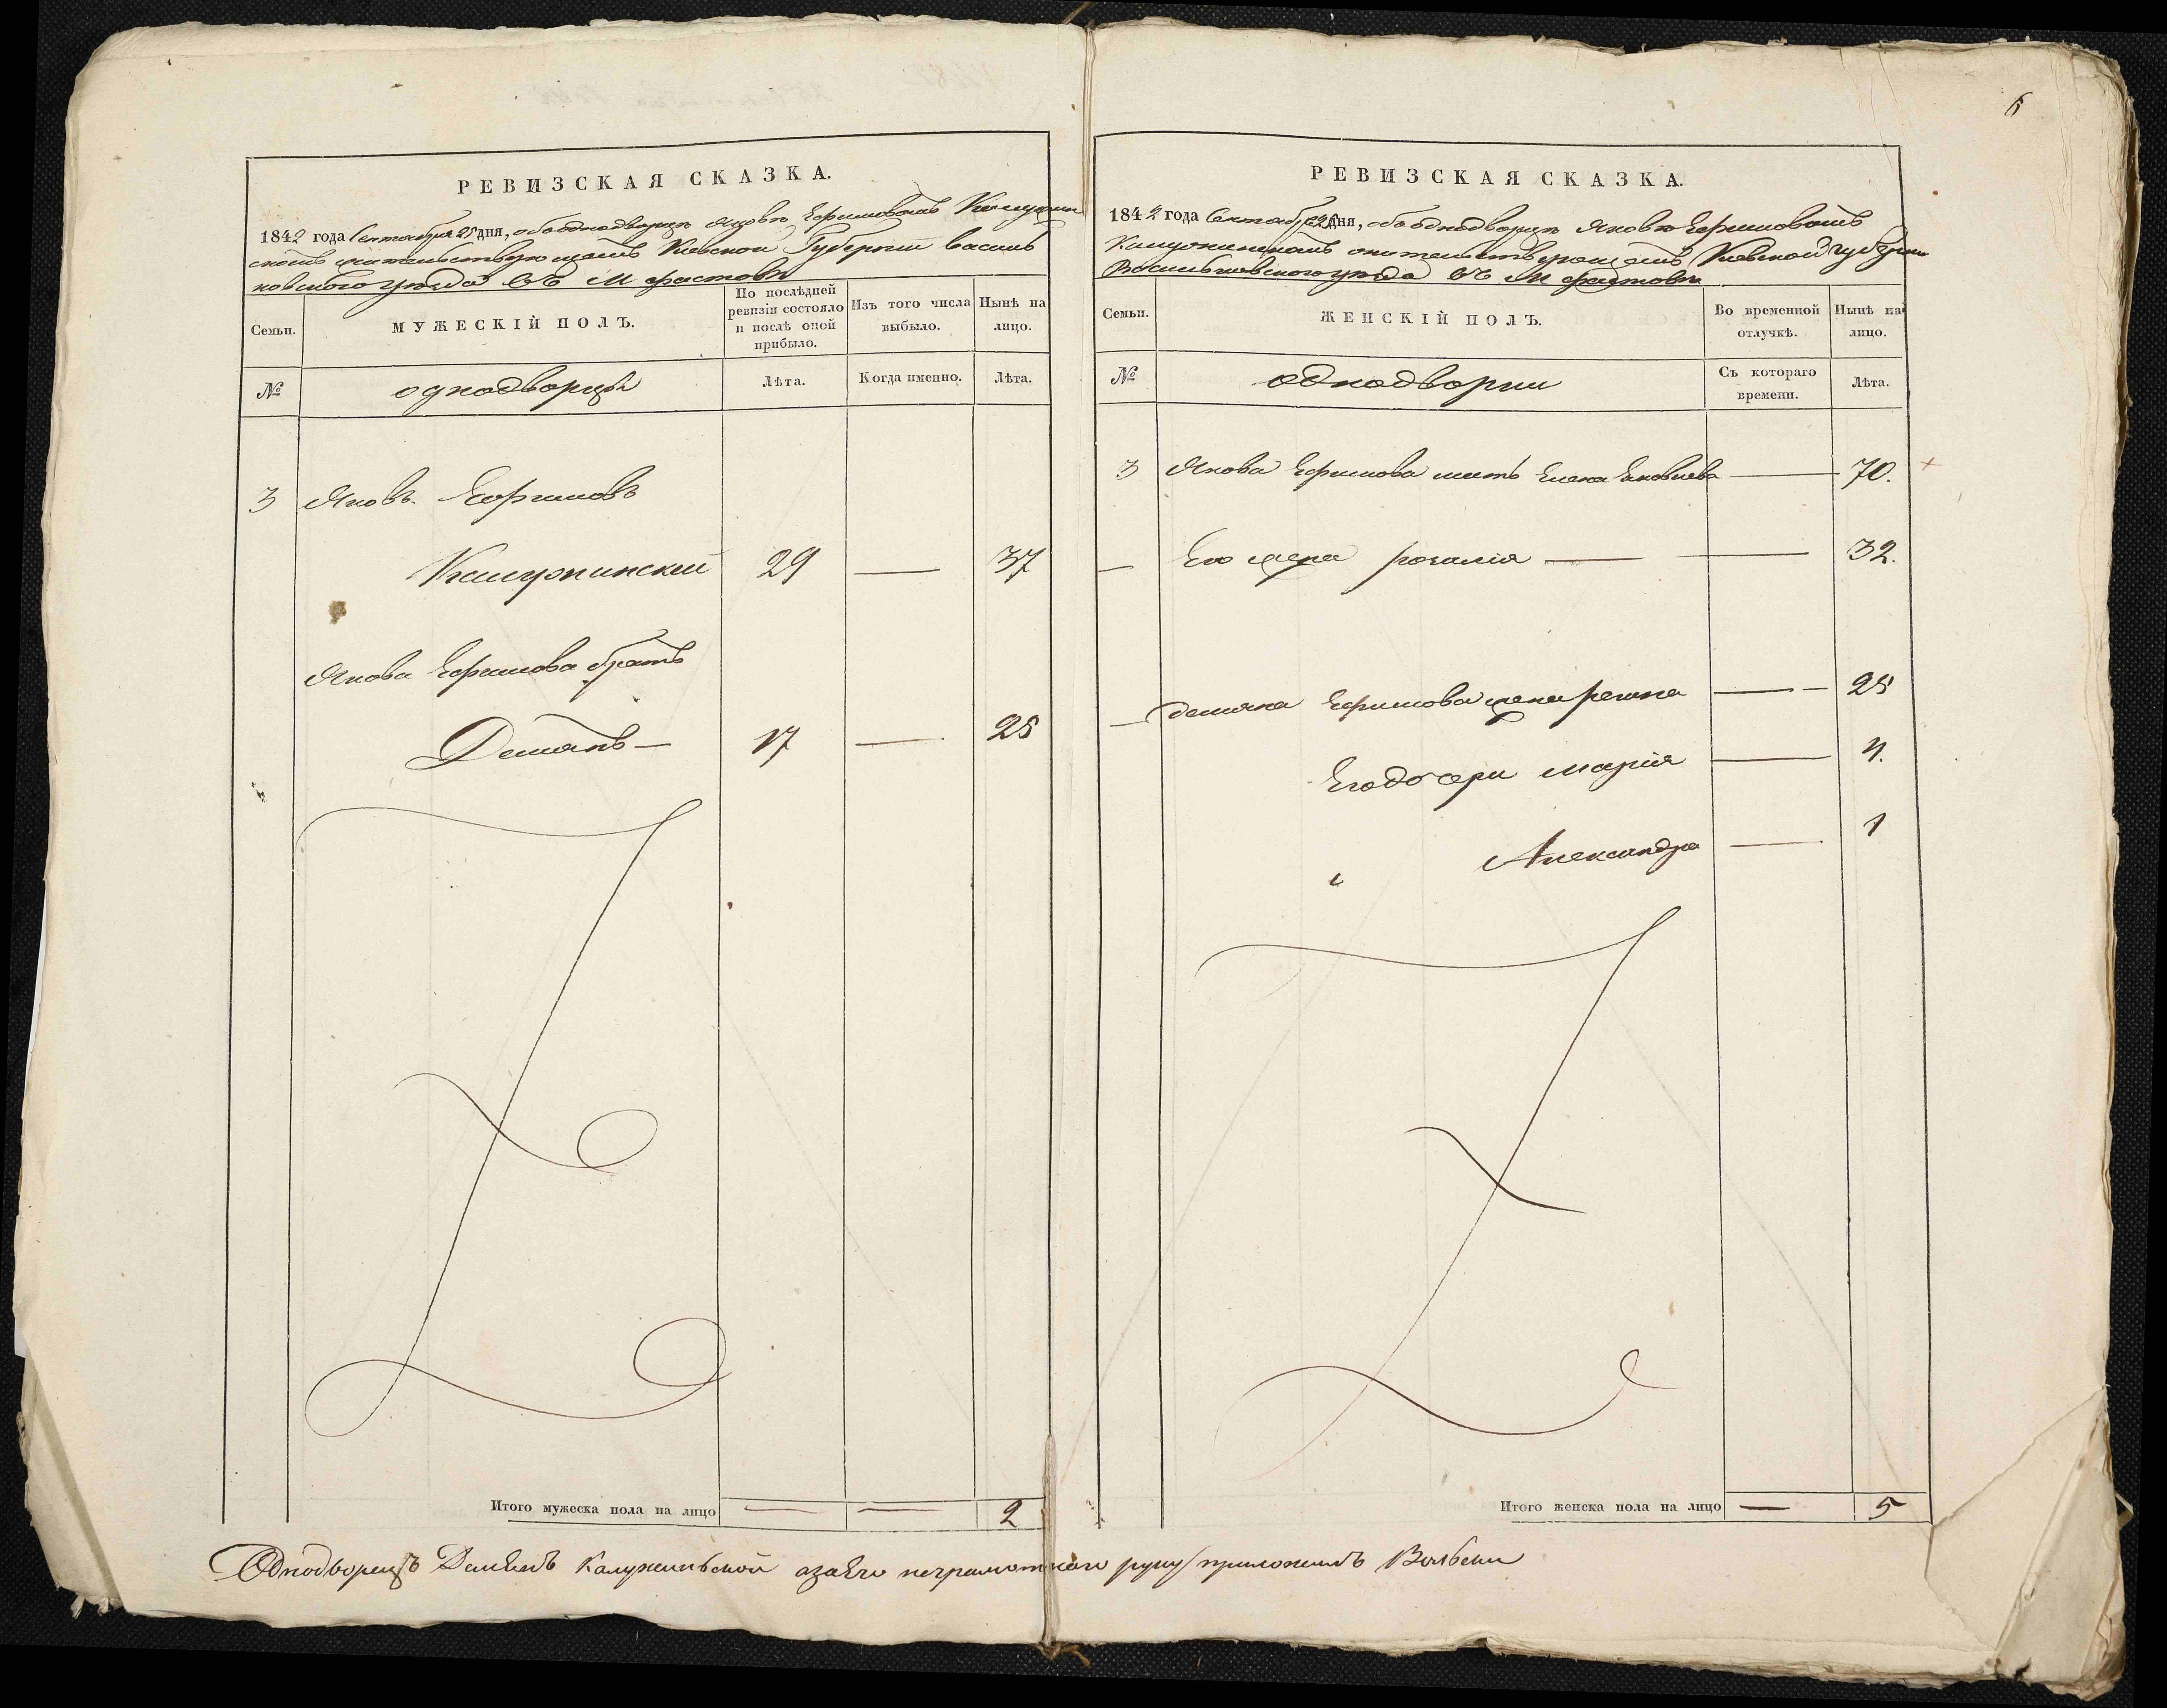 6
РЕВИЗСКАЯ СКАЗКА.
1842 года Сентября 25 дня, объ однодворцѣ Яковѣ Ефимовомъ Калужин
скомъ жительствующемъ Кіевской Губерніи Василь
ковскаго уѣзда въ М Фастовѣ
Семьи.
МУЖЕСКІЙ ПОЛЪ.
По послѣдней ревизіи состояло и послѣ оной прибыло.
Изъ того числа выбыло.
Нынѣ на лицо.
№
однодворцы
Лѣта.
Когда именно.
Лѣта.
3 Яковъ Ефимовъ
Калужинскій 29 — 37
Якова Ефимова братъ
Демянъ — 17 — 25
Итого мужеска пола на лицо — — 2
РЕВИЗСКАЯ СКАЗКА.
1842 года Сентября 25 дня, объ однодворцѣ Яковѣ Ефимовомъ
Калужинскомъ жительствующемъ Кіевской губерніи
Васильковскаго уѣзда въ М Фастовѣ
Семьи.
ЖЕНСКІЙ ПОЛЪ.
Во временной отлучкѣ.
Нынѣ на лицо.
№
однодворки
Съ котораго времени.
Лѣта.
3 Якова Ефимова мать Елена Яковлева — 70.
— Его жена розалія — — 32.
— демяна Ефимова жена — — 25
Его дочери марія — 4.
Александра — 1
Итого женска пола на лицо — 5
Однодворецъ Демьянъ Калужиньской а за Его неграмотного руку приложилъ